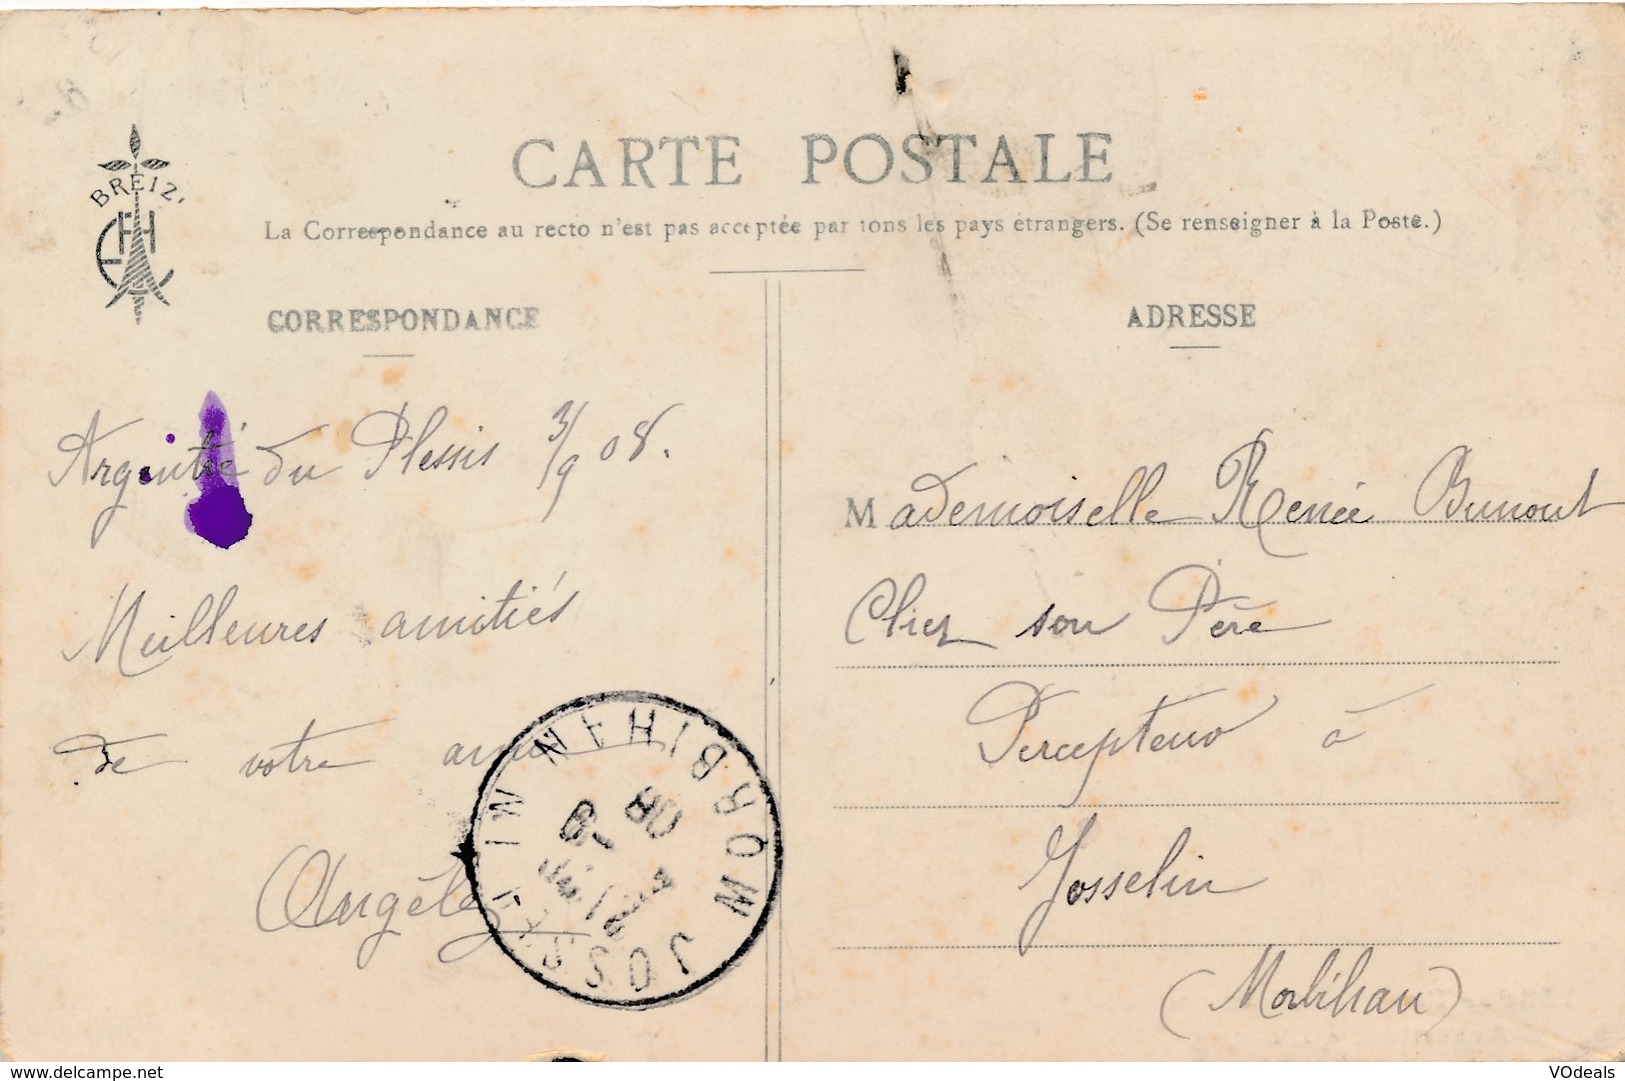 BREIZ
CARTE POSTALE
La Correspondance au recto n'est pas acceptée par tous les pays étrangers. (Se renseigner à la Poste.)
CORRESPONDANCE
Argentré du Plessis 3/9 08.
Meilleures amitiés
de votre amie
Angèle
JOSSELIN MORBIHAN
08
ADRESSE
Mademoiselle Renée
Chez son Père
Percepteur à
Josselin
(Morbihan)
www.delcampe.net
VOdeals